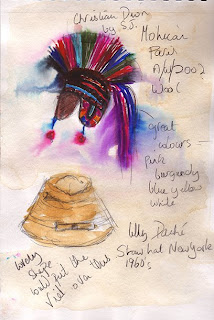 Christian Dior
by S.J.
Mohican
Paris
A/W 2002
Wool
great
colours —
pink
burgandy
blue yellow
white
Lilly Daché
Straw hat New York
1960's
lovely
shape
but the
veil over this